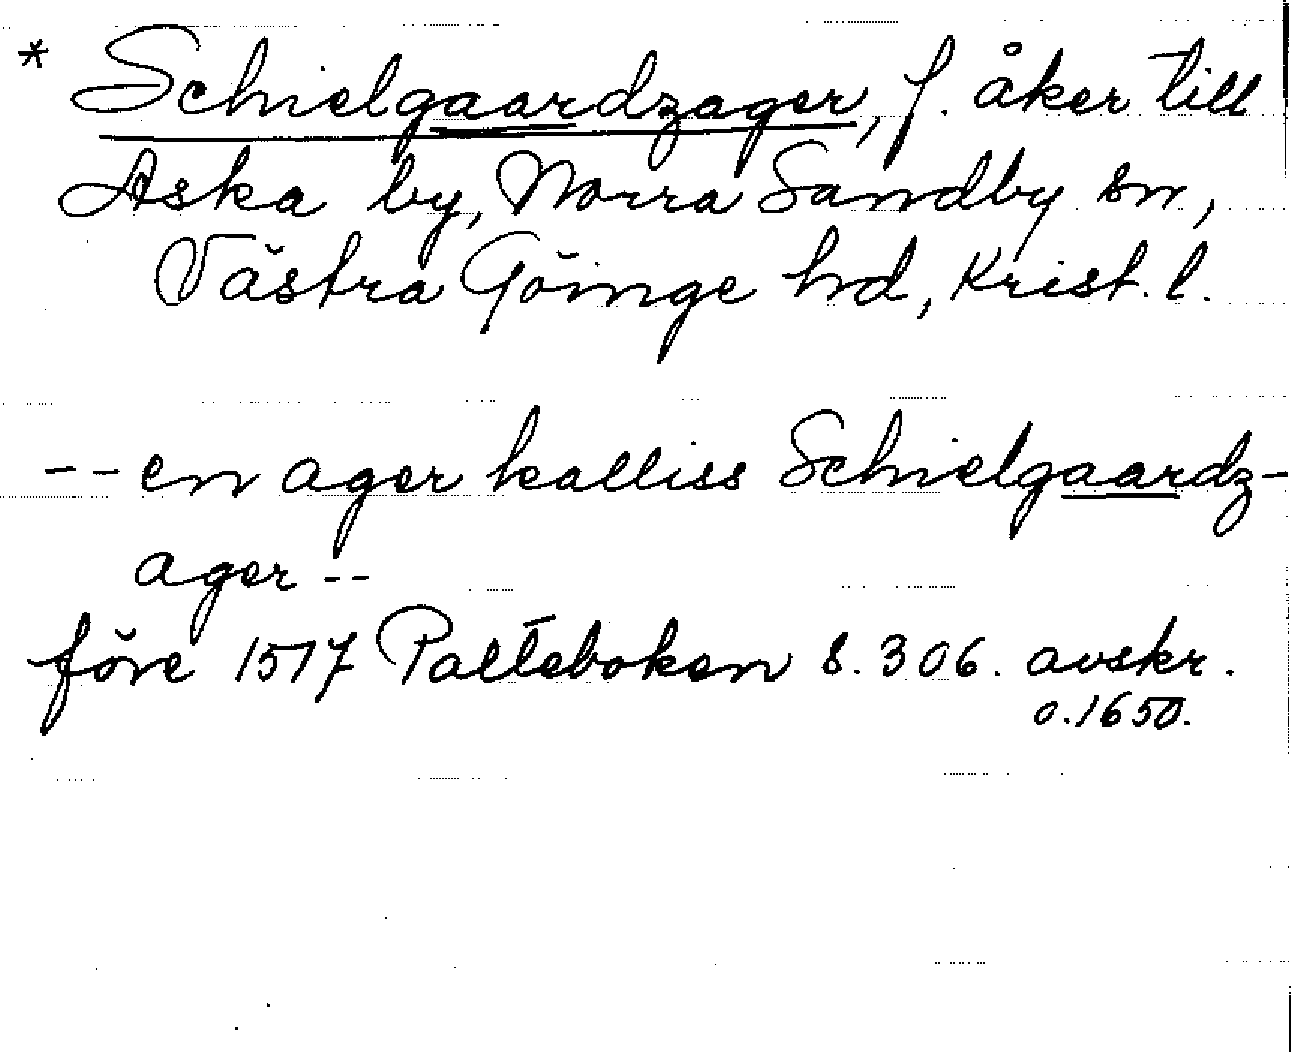 * Schielgaardzager, f. åker till
Aska by, Norra Sandby sn,
Västra Göinge hd, Krist. l.
-- en ager kalliss Schielgaardz-
ager --
före 1517 Palteboken s. 306. avskr.
o. 1650.